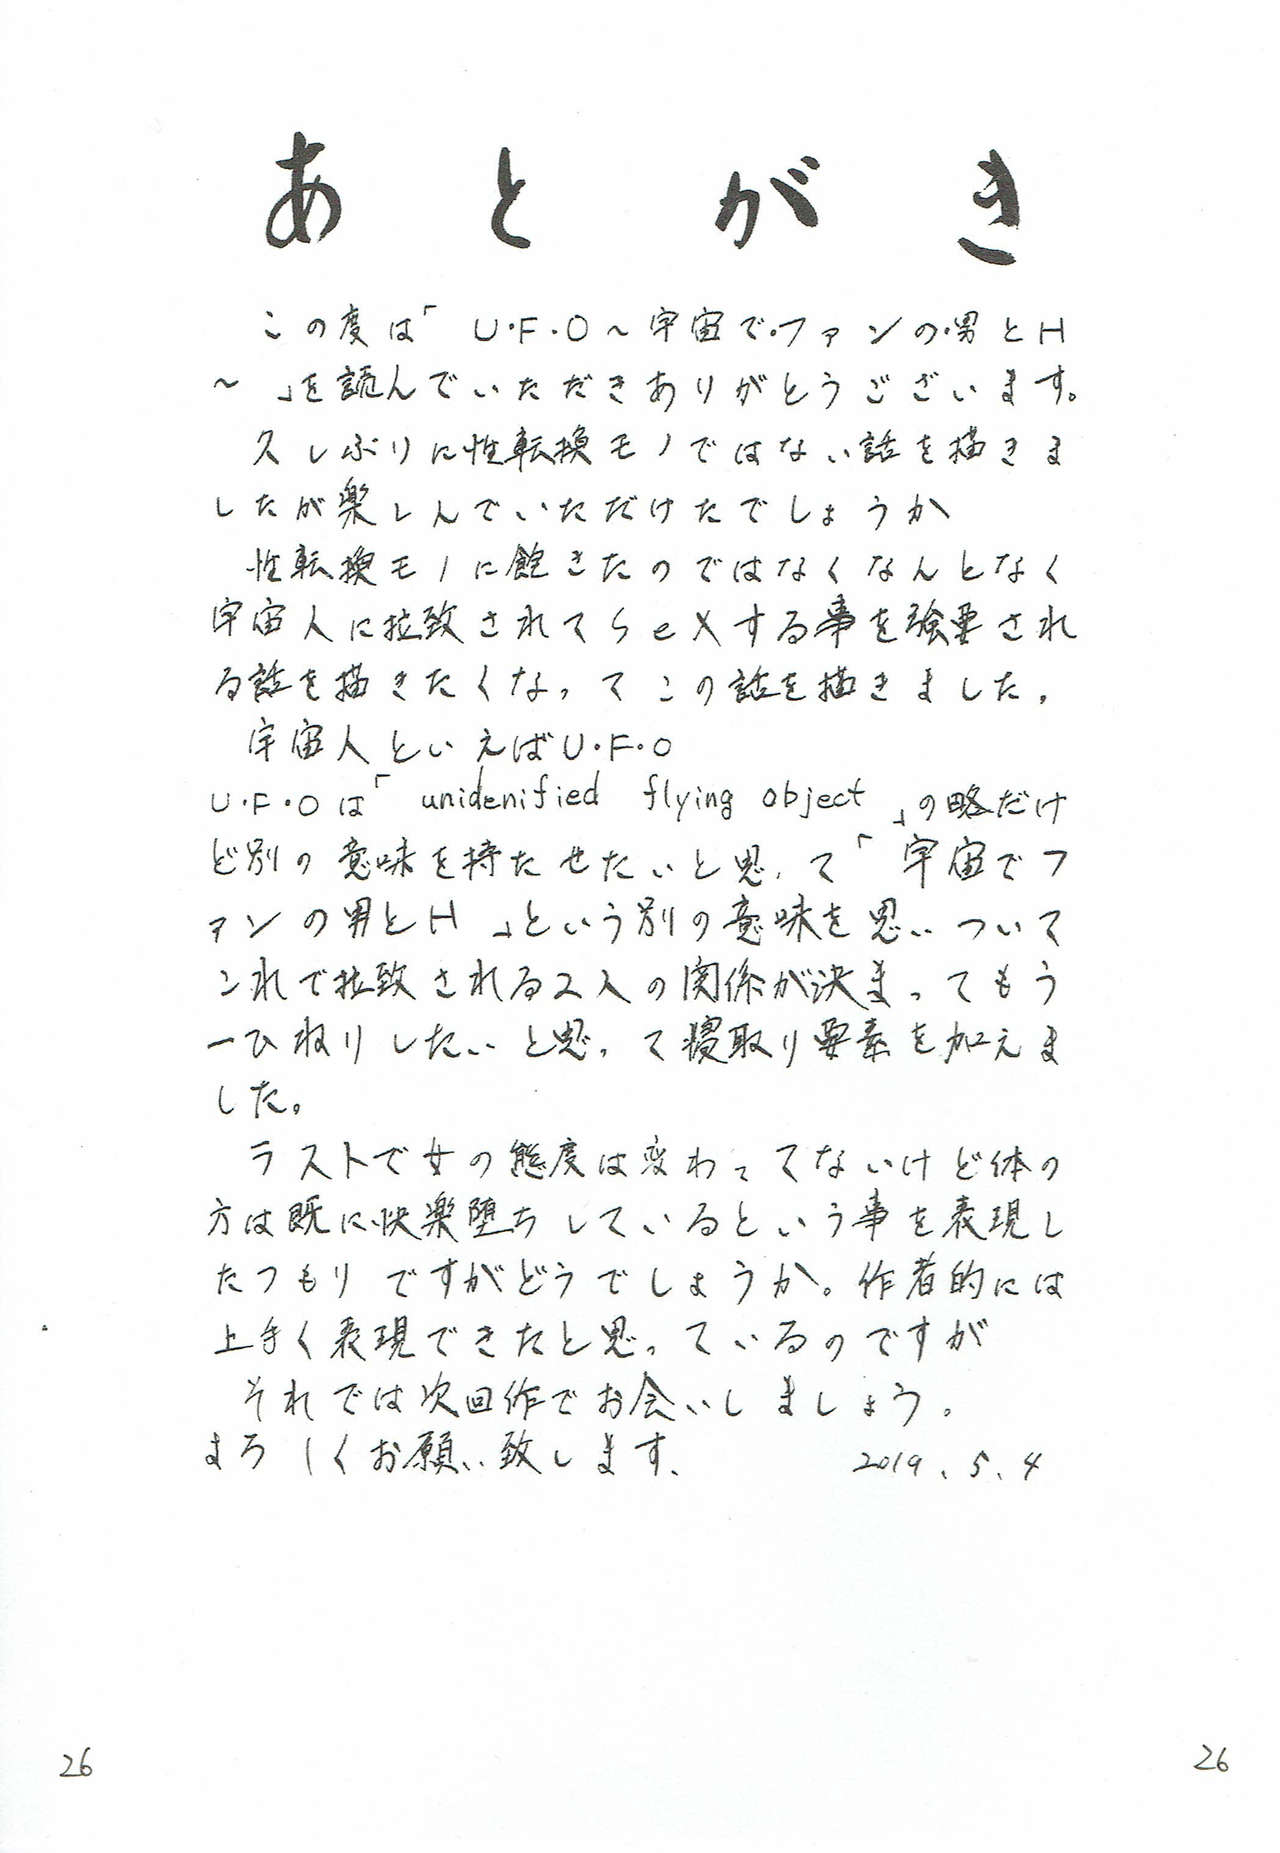 あとがき
この度は「U・F・O～宇宙で・ファンの・男とH
～」を読んでいただきありがとうございます。
久しぶりに性転換モノではない話を描きま
したが楽しんでいただけたでしょうか
性転換モノに飽きたのではなくなんとなく
宇宙人に拉致されてSeXする事を強要され
る話を描きたくなってこの話を描きました。
宇宙人といえばU・F・O
U・F・Oは「unidenified flying object」の略だけ
ど別の意味を持たせたいと思って「宇宙でフ
ァンの男とH」という別の意味を思いついて
これで拉致される2人の関係が決まってもう
一ひねりしたいと思って寝取り要素を加えま
した。
ラストで女の態度は変わってないけど体の
方は既に快楽堕ちしているという事を表現し
たつもりですがどうでしょうか。作者的には
上手く表現できたと思っているのですが
それでは次回作でお会いしましょう。
よろしくお願い致します、 2019.5.4
26 26